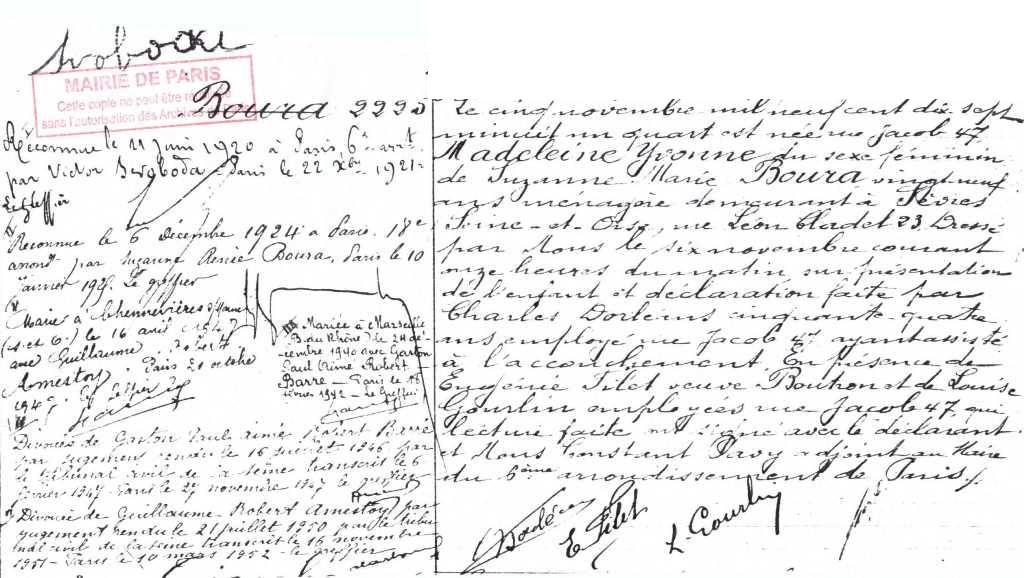 Svobodu
MAIRIE DE PARIS
Cette copie ne peut être
sans l'autorisation des Archives
Boura 2223
Reconnue le 11 juin 1920 à Paris, 6e arrt
par Victor Paris le 22 Xbre 1921-
Le greffier
Reconnue le 6 décembre 1924 à Paris. 18e
arrondt par Suzanne Renée Boura, Paris le 10
janvier 1925. Le greffier
Mariée à Chennevières s/Marne
(S. et O.) le 16 avril 1947
avec Guillaume Robert
Amestoy. Paris 20 octobre
194
Mariée à Marseille
B. du Rhône le 24 dé-
cembre 1940 avec Gaston
Paul Aimé Robert -
Barre - Paris le 18
février 1942 - Le Greffier
Divorcée de Gaston Paul Aimé Robert Barre
par jugement rendu le 16 juillet 1946 par
le tribunal civil de la Seine transcrit le 6
février 1947 Paris le 27 novembre 1947 le greffier
Divorcée de Guillaume Robert Amestoy par
jugement rendu le 21 juillet 1950 par le tribu
nal civil de la Seine transcrit le 16 novembre
1951 - Paris le 10 mars 1952 - le greffier
Le cinq novembre mil neuf cent dix sept
minuit un quart est née rue Jacob 47,
Madeleine Yvonne du sexe féminin
de Suzanne Marie Boura vingt neuf
ans ménagère demeurant à Sèvres
Seine-et-Oise, rue Léon Cladel 23. Dressé
par Nous le six novembre courant
onze heures du matin sur présentation
de l'enfant et déclaration faite par
Charles Dorléans cinquante-quatre
ans employé rue Jacob 47 ayant assisté
à l'accouchement. En présence de
Eugénie Filet veuve Bouthon et de Louise
Gourlin employées rue Jacob 47, qui
lecture faite ont signé avec le déclarant
et Nous Constant Pavy adjoint au Maire
du 6ème arrondissement de Paris./.
E Filet
L. Gourlin